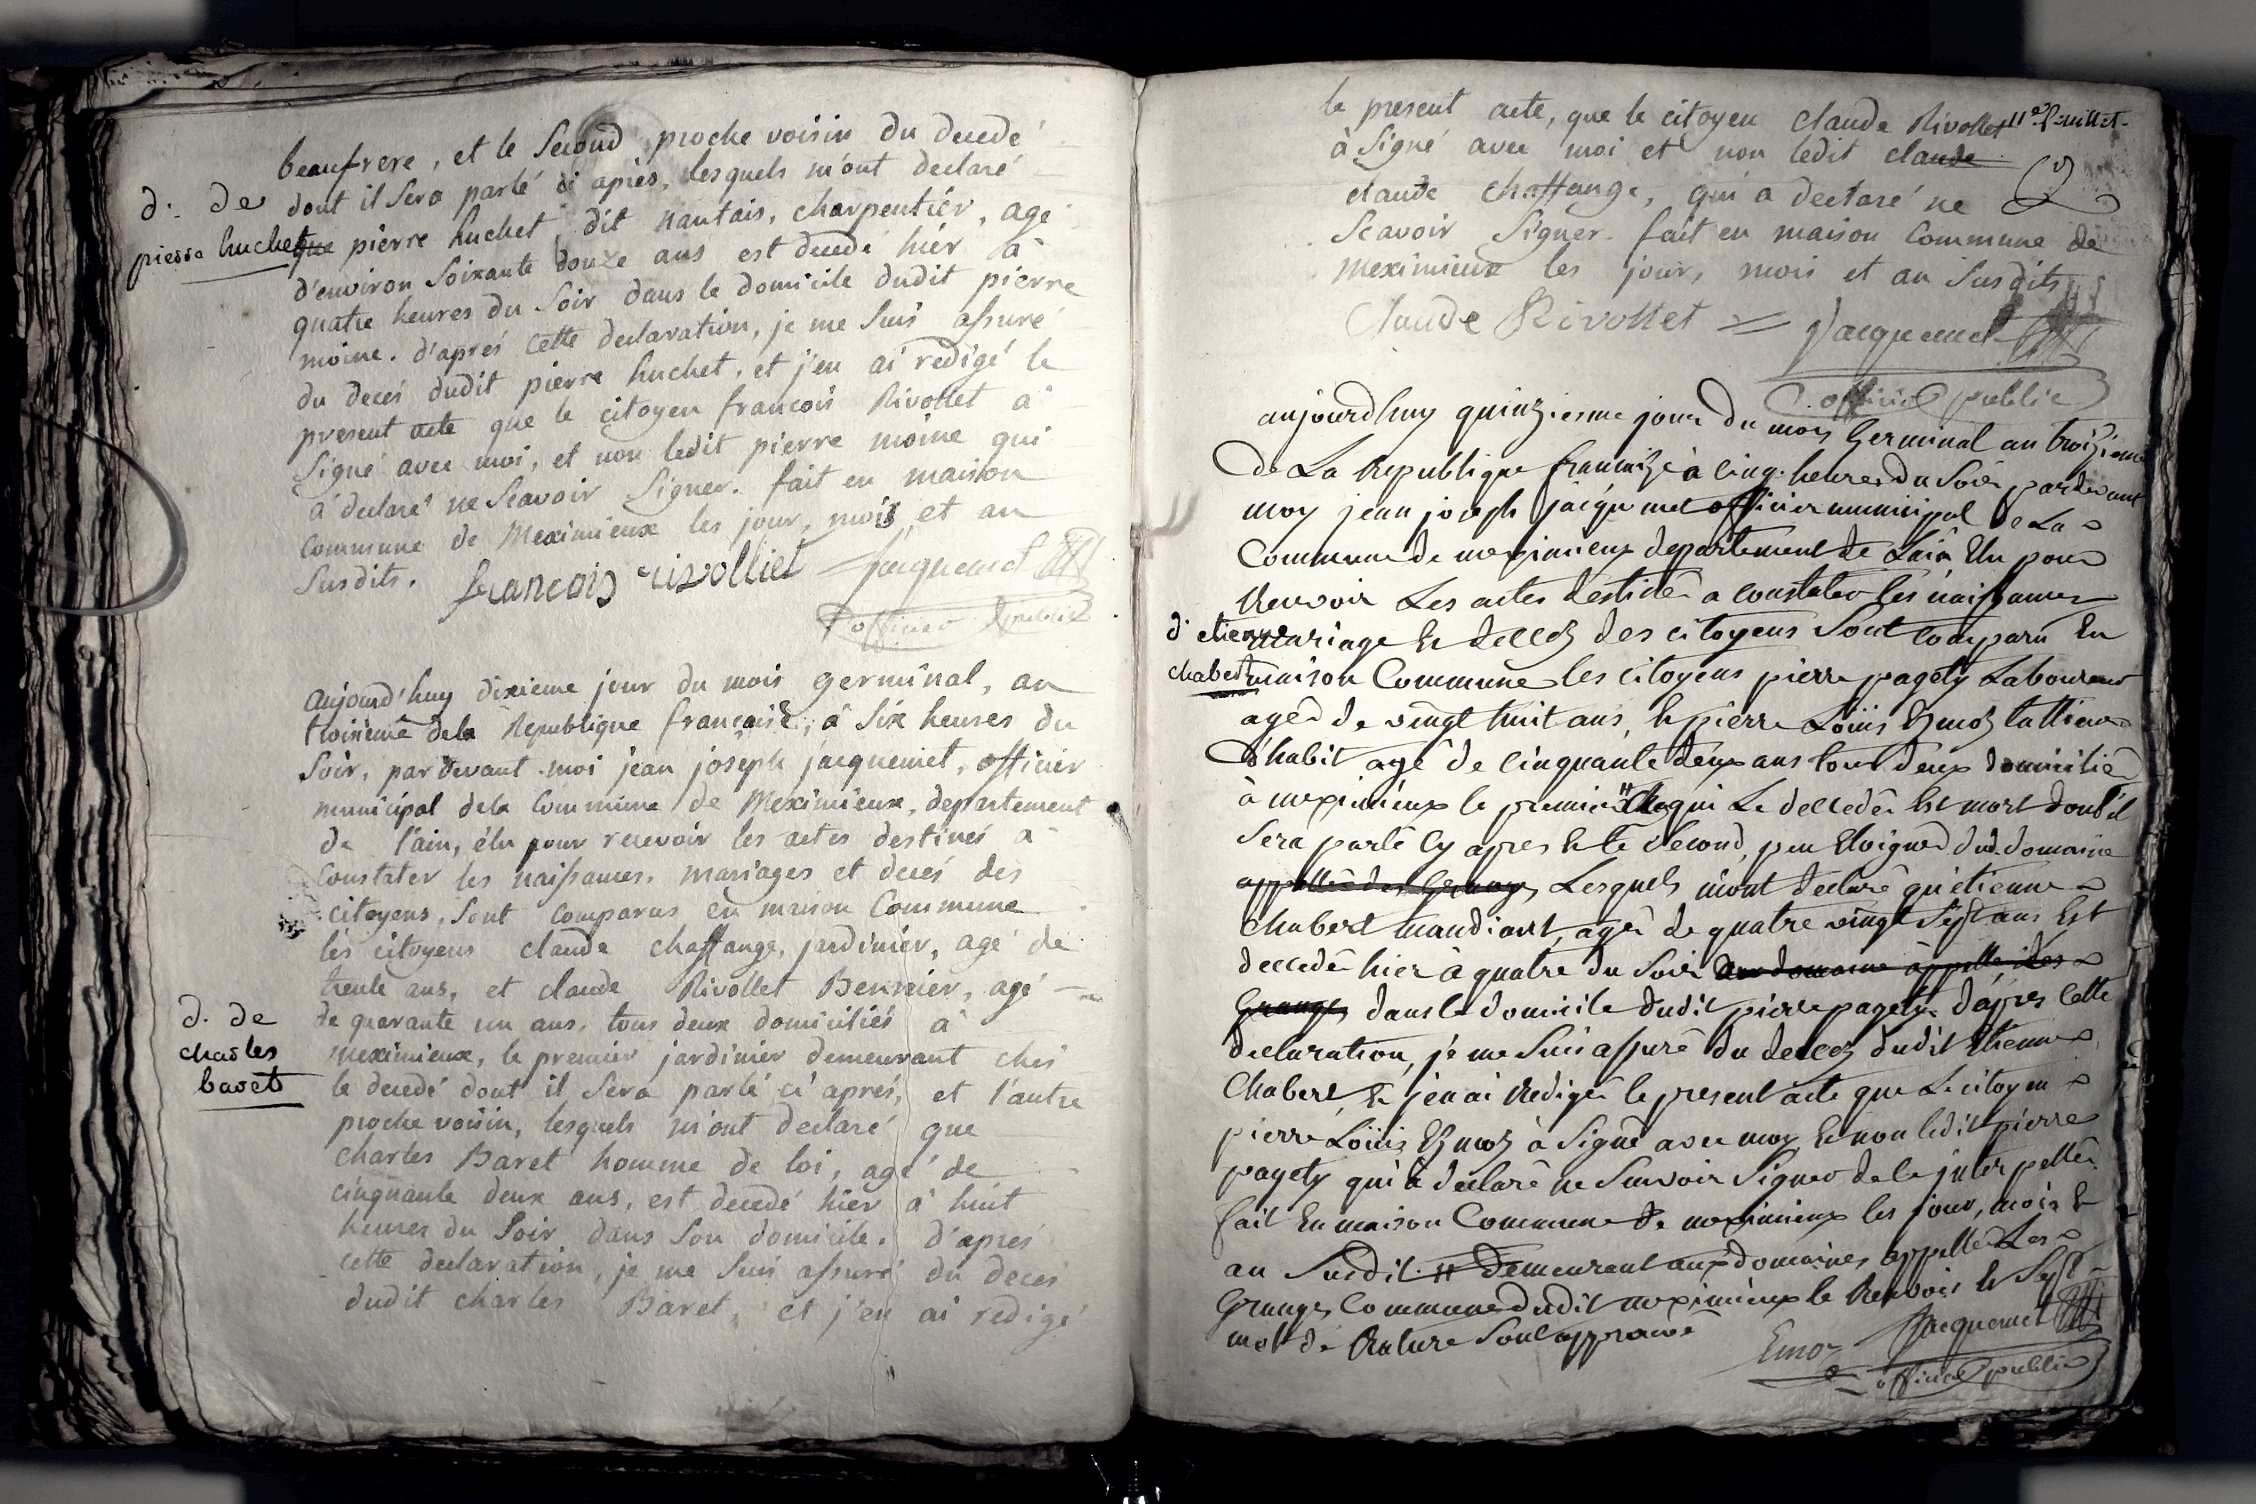 beaufrere, et le Second proche voisin du decedé
d. de
pierre huchet
dont il Sera parlé ci après, lesquels m'ont declaré
que pierre huchet dit nantais, charpentiér, agé
d'environ Soixante douze ans est decedé hiér à
quatre heures du Soir dans le domicile dudit pierre
moine. d'aprés cette declaration, je me Suis assuré
du decés dudit pierre huchet, et j'en ai redigé le
present acte que le citoyen francois Rivollet à
Signé avec moi, et non ledit pierre moine qui
à declaré ne Scavoir Signer. fait en maison
commune de Meximieux les jour, mois et an
Susdits.
francois rivolliet Jacquemet
officier public
aujourd'huy dixieme jour du mois germinal, an
troisieme dela Republique française, à Six heures du
Soir, pardevant moi jean joseph jacquemet, officiér
municipal dela Commune de Meximieux, departement
de l'ain, élu pour recevoir les actes destinés à
Constater les naissances, mariages et decés des
citoyens, Sont comparus en maison Commune
les citoyens claude chaffange, jardiniér, agé de
trente ans, et claude Rivollet Bennier, agé
d. de
charles
baret
de quarante un ans, tous deux domiciliés à
meximieux, le premier jardinier demeurant chés
le decedé dont il Sera parlé ci aprés, et l'autre
proche voisin, lesquels m'ont declaré que
charles Baret homme de loi, agé de
cinquante deux ans, est decedé hier à huit
heures du Soir dans Son domicile. d'aprés
cette declaration, je me Suis assuré du decés
dudit charles Baret, et j'en ai redigé
11e feuillet
le present acte, que le citoyen claude Rivollet
à Signé avec moi et non ledit claude
claude chaffange, qui a declaré ne
Scavoir Signer. fait en maison Commune de
meximieux les jour, mois et an Susdits
Claude Rivollet Jacquemet
officier public
aujourdhuy quinziesme jour du mois Germinal an troizieme
de La Republique francaize à cinq heures du Soir pardevant
moy jean joseph jacquemet officier municipal de La
Commune de meximieux departement de Lain Elu pour
Recevoir Les actes destiner a constater les naissances
d. etienne
chabert
mariage Et decez des citoyens Sont comparu En
maison Commune les citoyens pierre pagety Laboureur
agée de vingt huit ans, Et pierre Loüis Ezmoz tallieur
d'habit agé de cinquante deux ans tous deux domicilié
à meximieux le premier # chez qui Le deccedé Est mort dont il
Sera parlé cy apres Et le Second, peu Eloigné dud. domaine
appellée des Granges, Lesquels m'ont declaré qu'etienne
chabert mandiant, agé de quatre vingt Sept ans Est
deccedé hier à quatre du Soir au domaine appellé des
Granges dans le domicile dudit pierre pagety. dapres cette
declaration, je me Suis assuré du decez dudit Etienne
Chabert, Et j'en ai Redigé le present acte que Le citoyen
pierre Loüis Ezmoz à Signé avec moy Et non ledit pierre
pagety qui à declaré ne Scavoir Signer de le jnterpellé
fait En maison Commune de meximieux les jour, mois Et
an Susdit. # demeurant aux domaines appellé Les
Granges Commune dudit meximieux le Renvoir Et Sept
mot de Rature Sont approuvé
Emoz Jacquemet
officier public